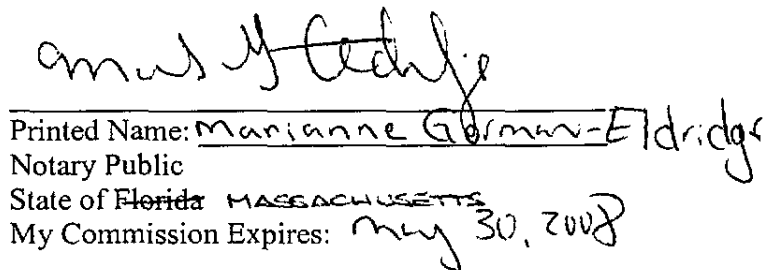 Printed Name: Marianne Gorman-Eldridge
Notary Public
State of Florida MASSACHUSETTS
My Commission Expires: May 30, 2008